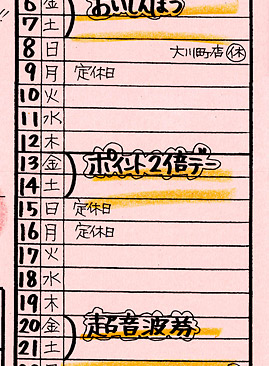 6 金 おいしんぼう
7 土
8 日 大川町店 休
9 月 定休日
10 火
11 水
12 木
13 金 ポイント2倍デー
14 土
15 日 定休日
16 月 定休日
17 火
18 水
19 木
20 金 超音波券
21 土